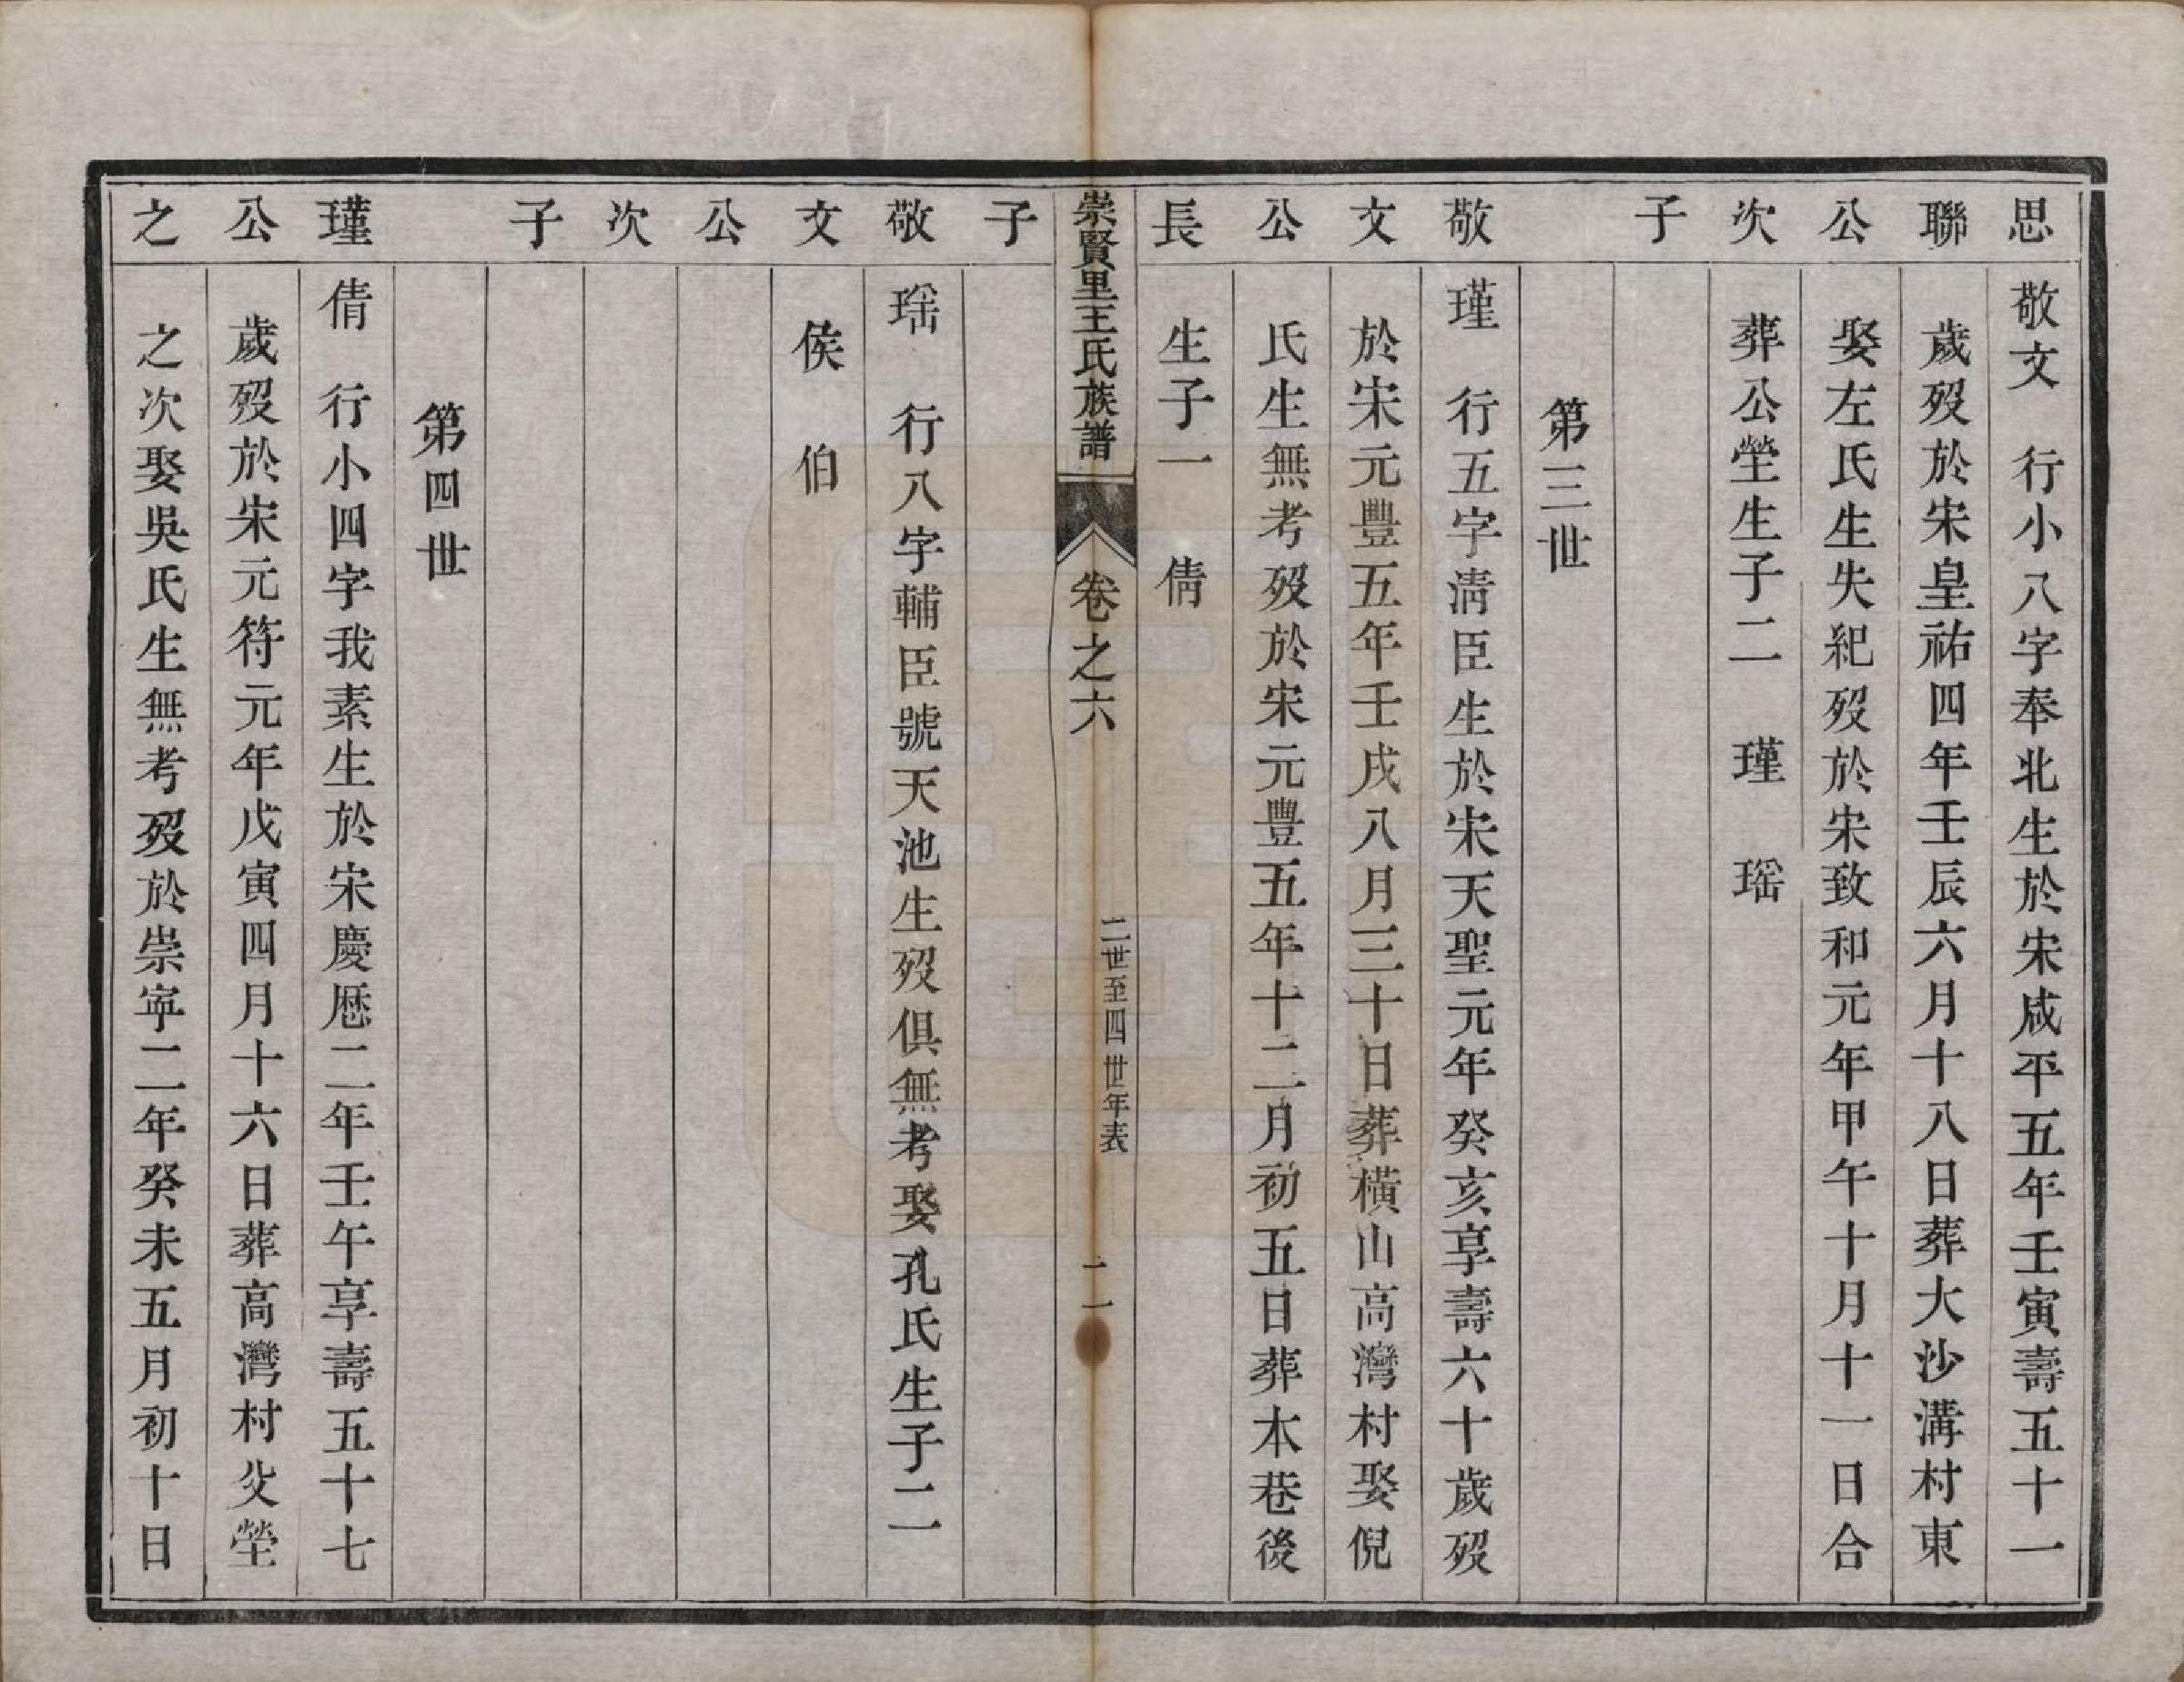 思 敬文 行小八字奉北生於宋咸平五年壬寅壽五十一
聯 歲歿於宋皇祐四年壬辰六月十八日葬大沙溝村東
公 娶左氏生失紀歿於宋致和元年甲午十月十一日合
次 葬公塋生子二 瑾 瑶
子
第三世
敬 瑾 行五字淸臣生於宋天聖元年癸亥享壽六十歲歿
文 於宋元豐五年壬戌八月三十日葬橫山高灣村娶倪
公 氏生無考歿於宋元豐五年十二月初五日葬木巷後
長 生子一 倩
崇賢里王氏族譜 卷之六 二世至四世年表 二
子
敬 瑶 行八字輔臣號天池生歿俱無考娶孔氏生子二
文 侯 伯
公
次
子
第四世
瑾 倩 行小四字我素生於宋慶歷二年壬午享壽五十七
公 歲歿於宋元符元年戊寅四月十六日葬高灣村父塋
之 之次娶吳氏生無考歿於崇寧二年癸未五月初十日